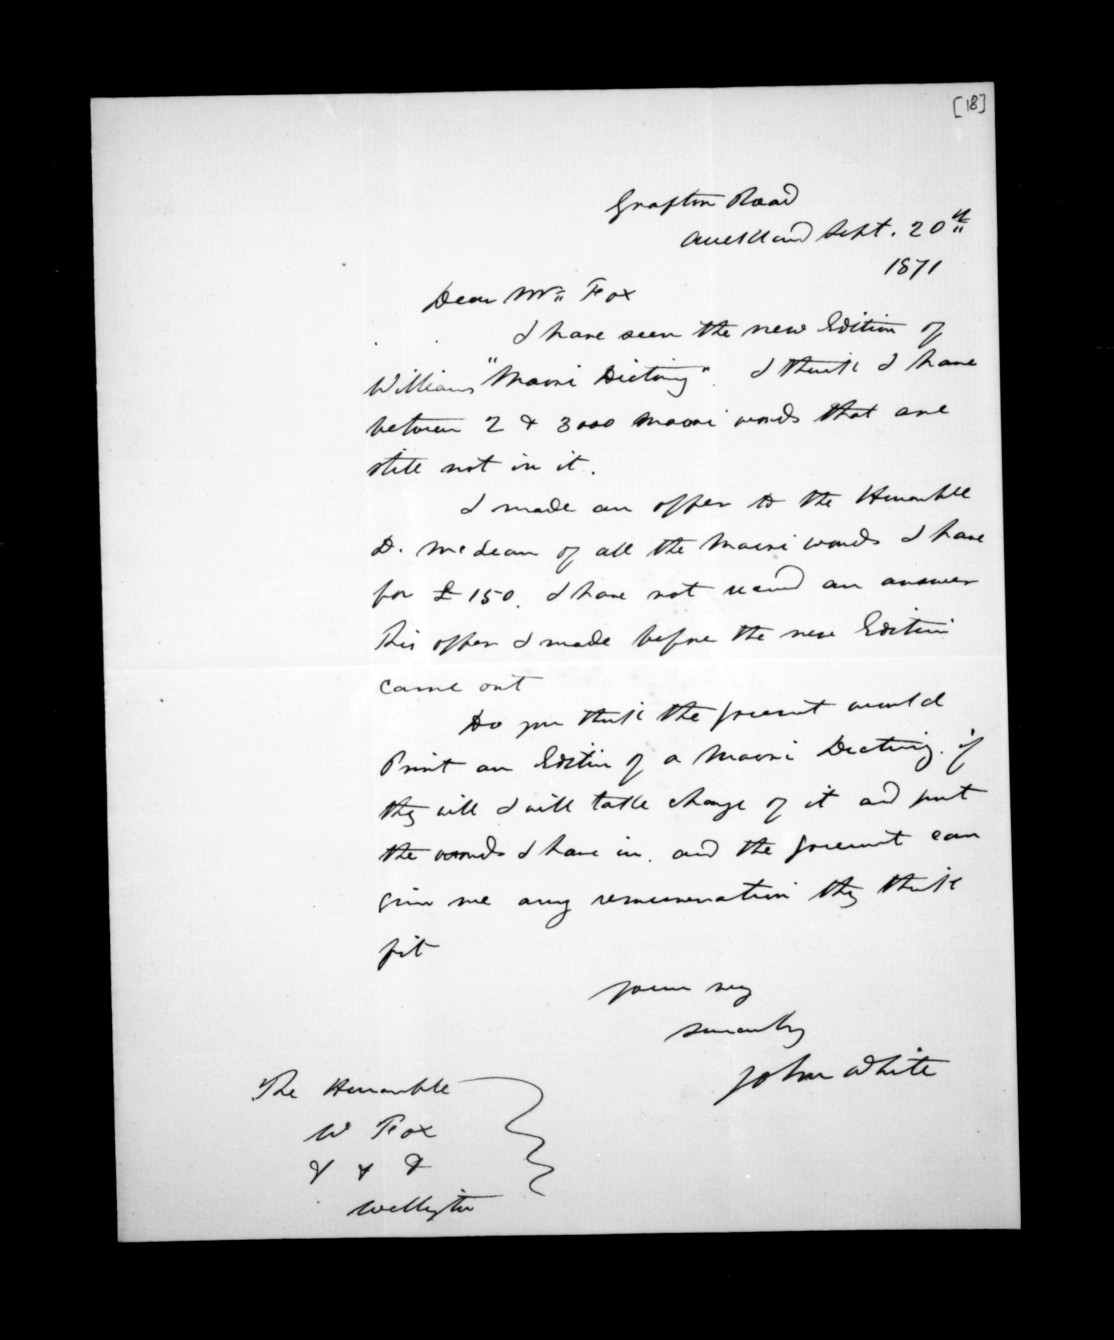 [18]
Grafton Road
Auckland Sept. 20th
1871
Dear Mr Fox
I have seen the new Edition of
Williams "Maori Dictiony". I think I have
between 2 & 3000 maori words that are
still not in it.
I made an offer to the Honorable
D. McLean of all the Maori words I have
for £150. I have not recived an answer
this offer I made before the new Edition
came out
Do you think the government would
Print an Edition of a Maori Dictiony. if
they will I will take charge of it and put
the words I have in. and the government can
give me any remuneration they think
fit
yours very
sincerely
John White
The Honorable
W Fox
& & &
Wellington